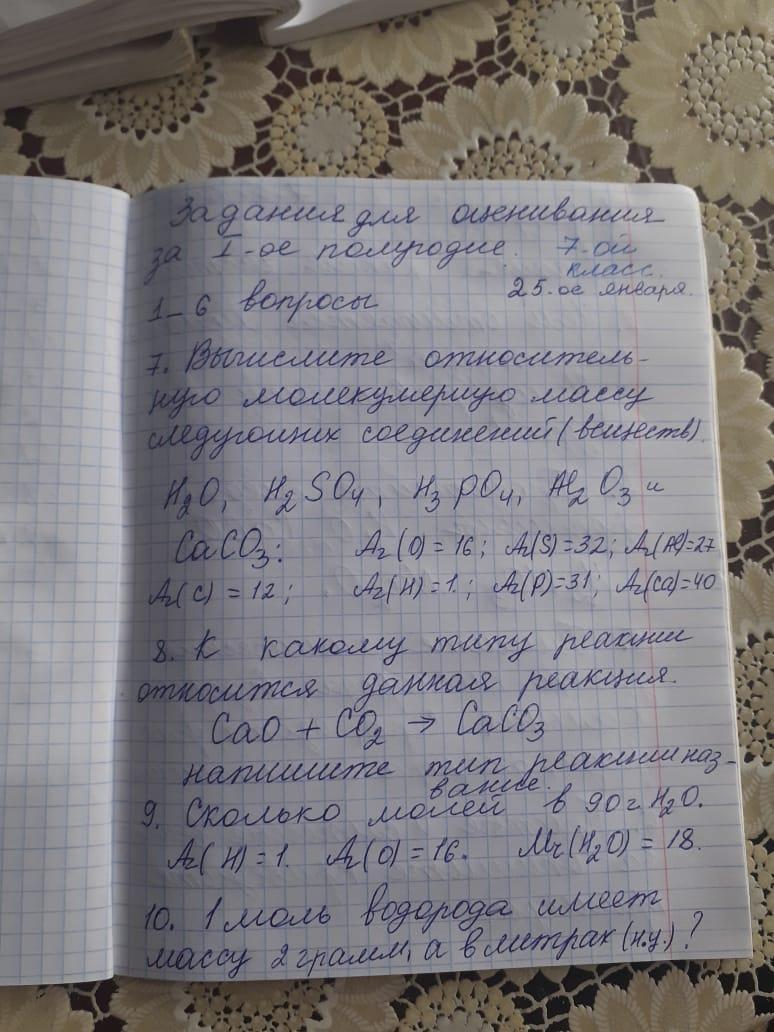 Задания для оценивания
за I-ое полугодие. 7-ой
класс.
25-ое января.
1-6 вопросы
7. Вычислите относитель-
ную молекулярную массу
следующих соединений (веществ).
H₂O, H₂SO₄, H₃PO₄, Al₂O₃ и
CaCO₃: Ar(O) = 16; Ar(S) = 32; Ar(Al) = 27
Ar(C) = 12; Ar(H) = 1.; Ar(P) = 31; Ar(Ca) = 40
8. К какому типу реакции
относится данная реакция.
CaO + CO₂ → CaCO₃
напишите тип реакции наз-
вание.
9. Сколько молей в 90 г H₂O.
Ar(H) = 1. Ar(O) = 16. Mr(H₂O) = 18.
10. 1 моль водорода имеет
массу 2 грамм, а в литрах (н.у.)?